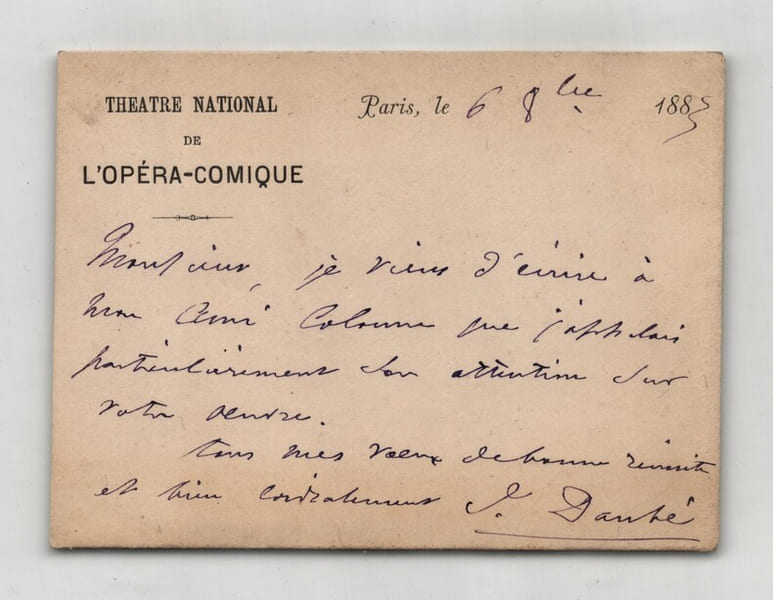 THEATRE NATIONAL
DE
L'OPÉRA-COMIQUE
Paris, le 6 8bre 1885
Monsieur, je viens d'écrire à
mon ami Colonne que j'appelais
particulièrement son attention sur
votre
tous mes vœux de bonne réussite
et bien cordialement J. Danbé